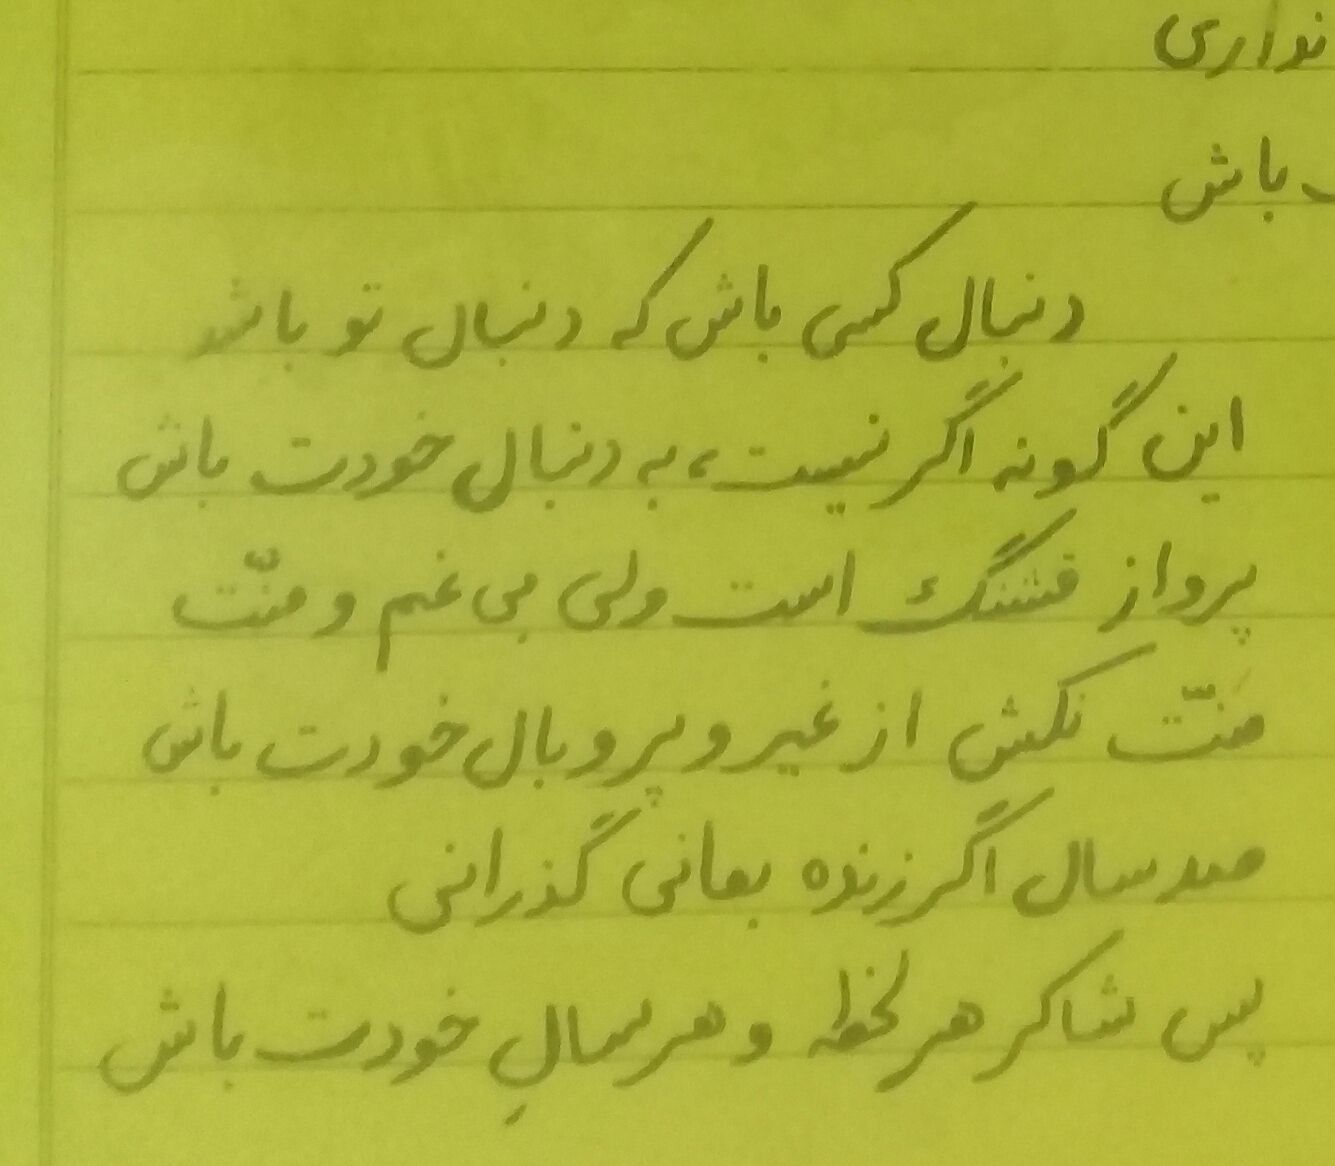 نداری
باش
دنبال کسی باش که دنبال تو باشد
این گونه اگر نیست، به دنبال خودت باش
پرواز قشنگ است ولی بی غم و منّت
منّت نکش از غیر و پر و بال خودت باش
صد سال اگر زنده بمانی گذرانی
پس شاکر هر لحظه و هر سالِ خودت باش